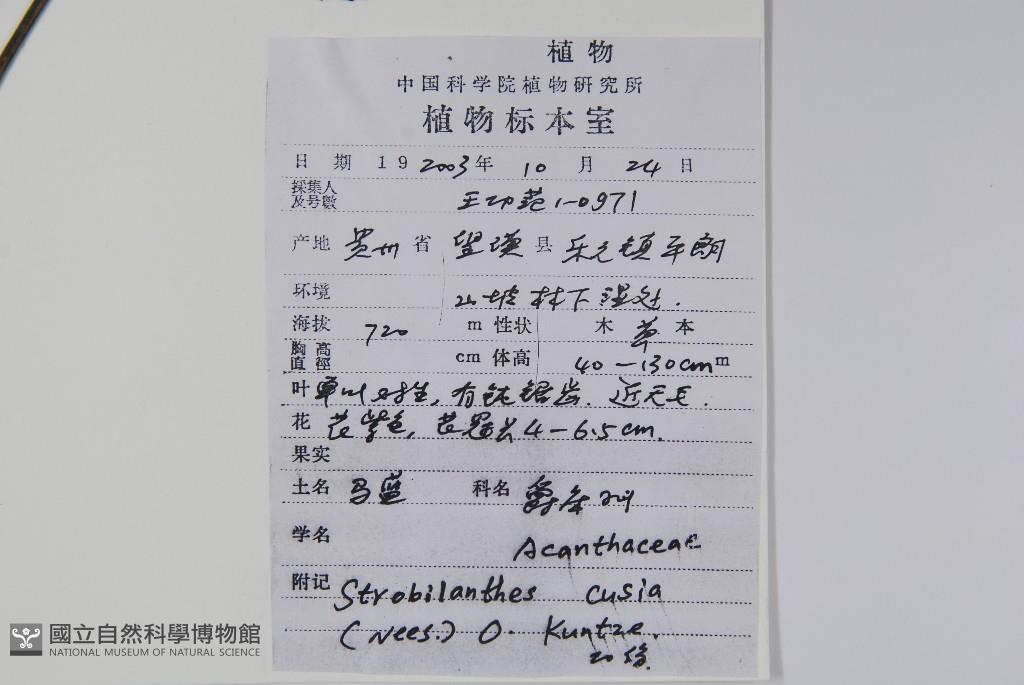 植物
中国科学院植物研究所
植物标本室
日 期 19 2003年 10 月 24 日
採集人及号數 王功范 1-0971
产地 贵州 省 望谟 县 乐元镇平朗
环境 山坡林下湿处.
海拔 720 m 性状 木 草 本
胸高直徑 cm 体高 40-130cm m
叶 单叶对生, 有钝锯齿. 近无毛.
花 花紫色, 花冠长4-6.5cm.
果实
土名 马蓝 科名 爵床科
学名 Acanthaceae
附记 Strobilanthes cusia
(Nees.) O. Kuntze.
20份.
國立自然科學博物館
NATIONAL MUSEUM OF NATURAL SCIENCE